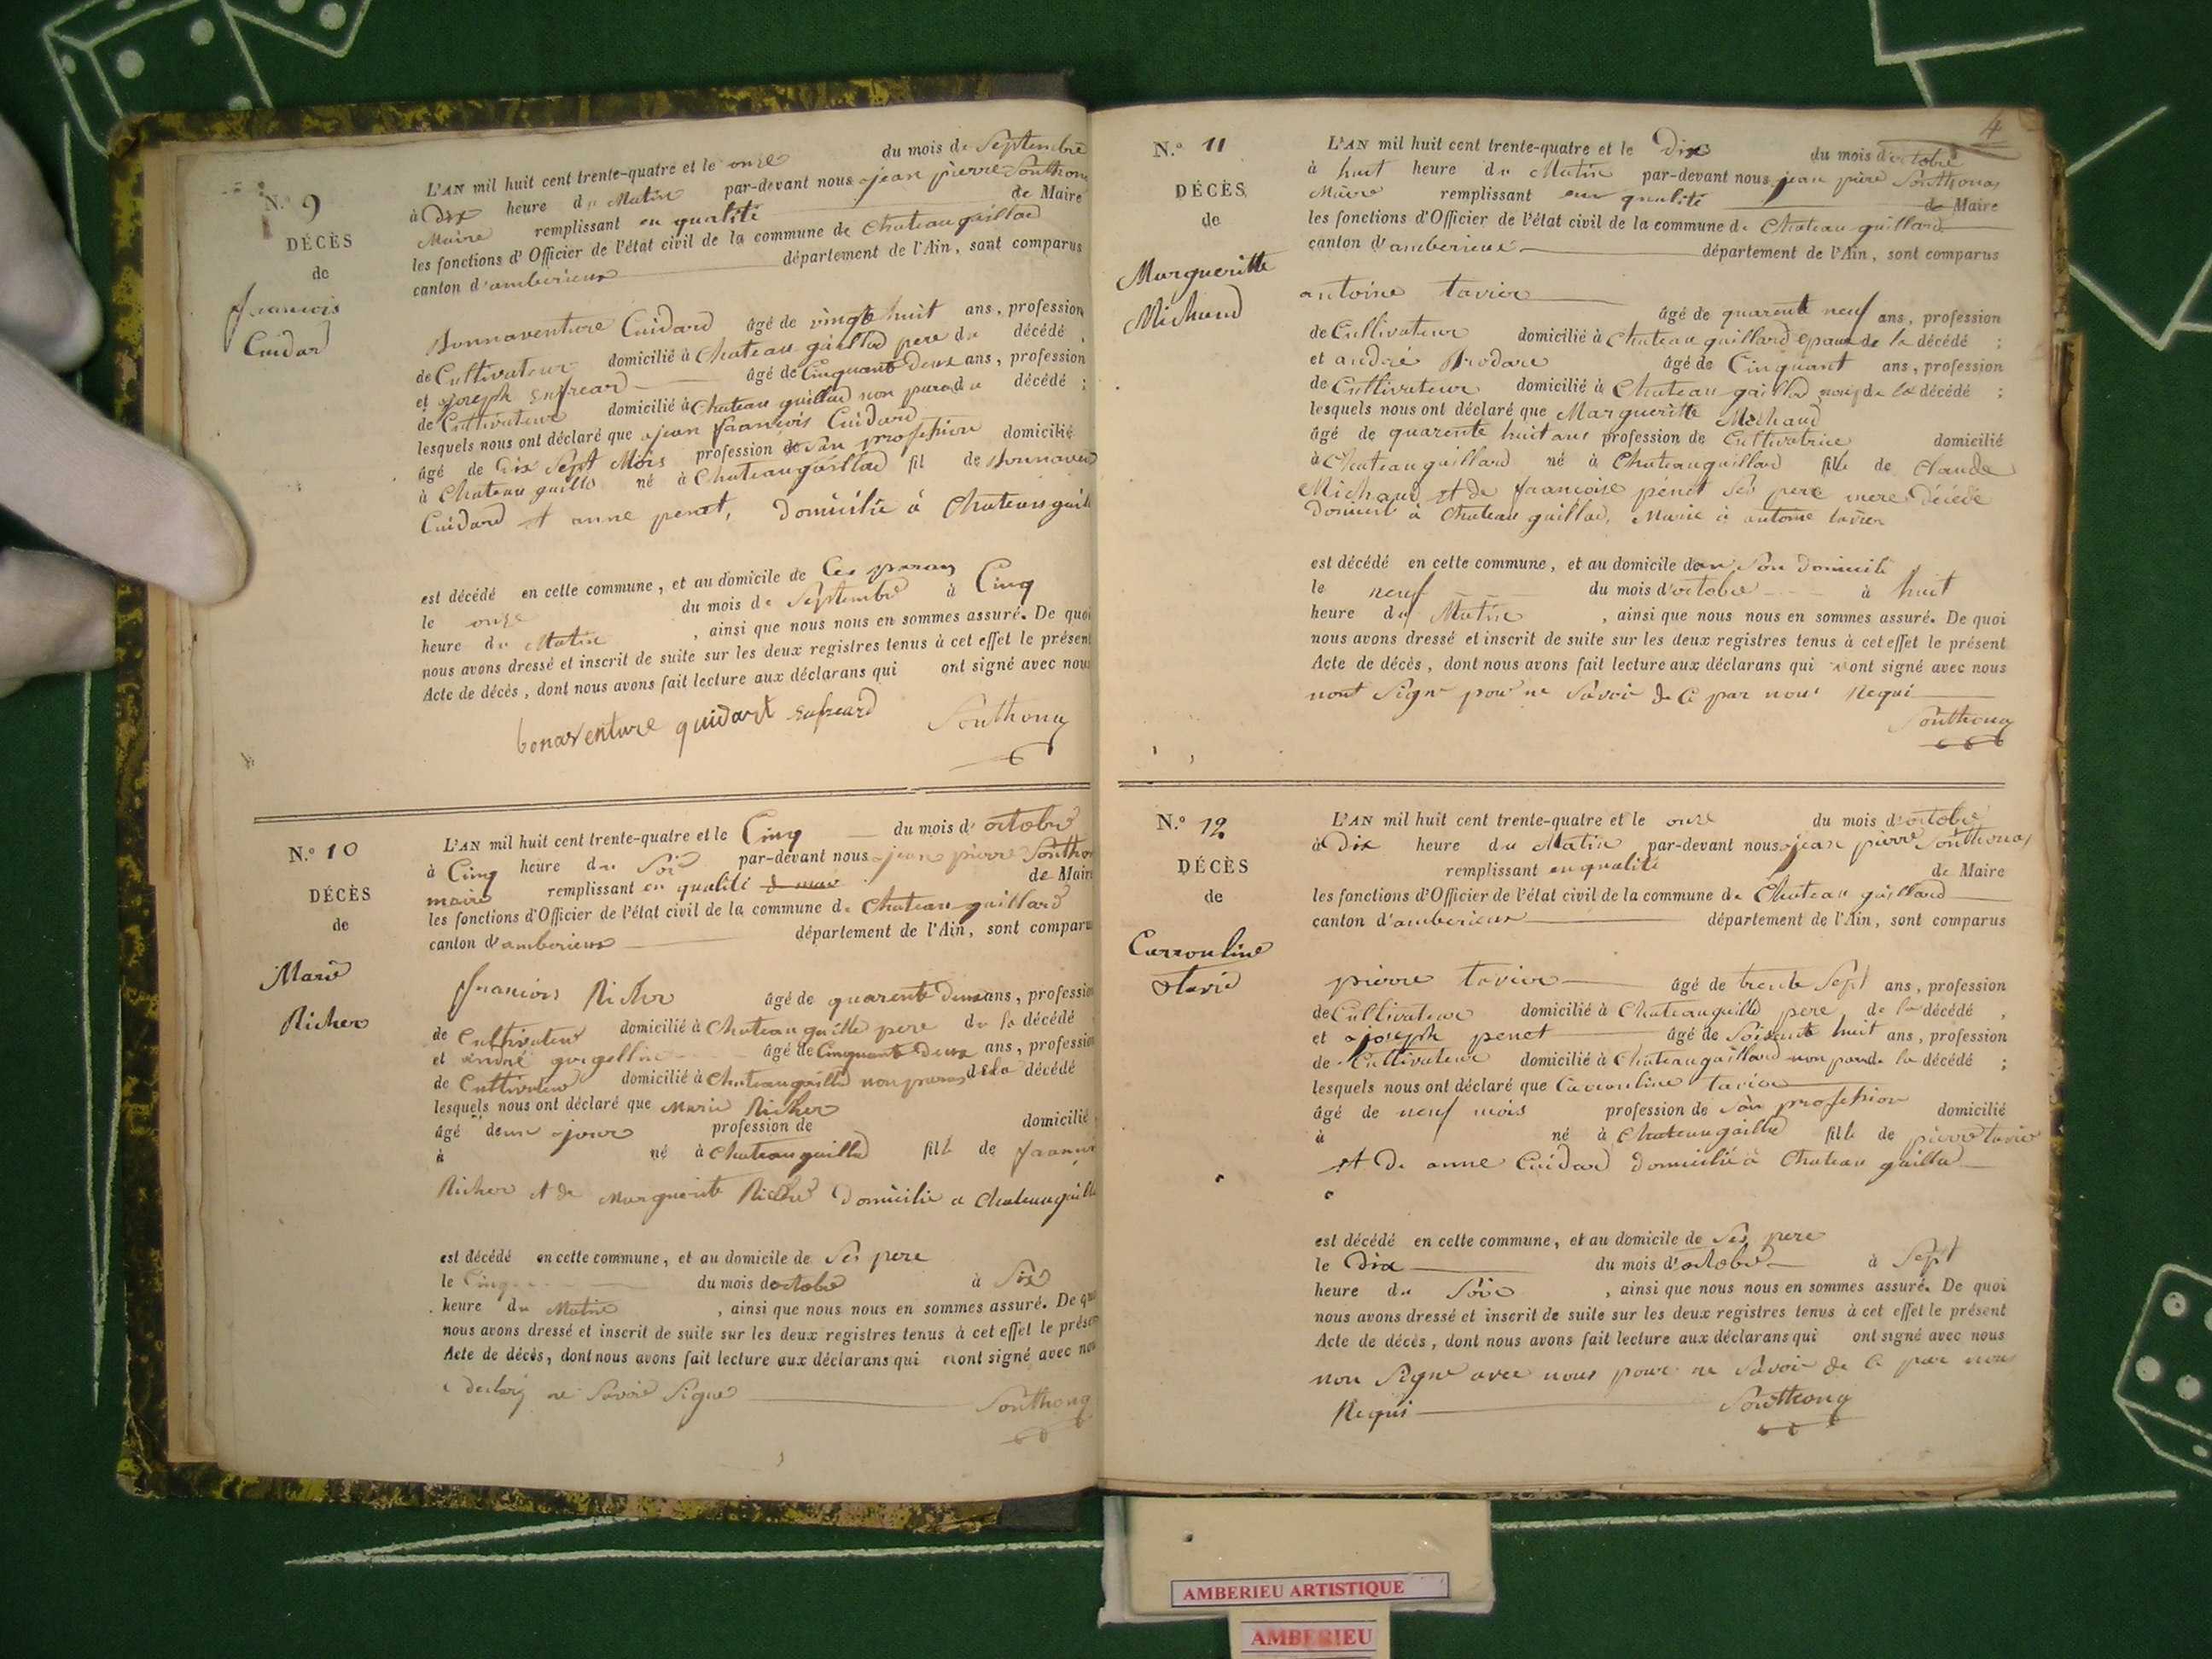 N.° 9
DÉCÈS
de
francois
Cuidard
L'AN mil huit cent trente-quatre et le onze du mois de Septembre
à Dix heure du Matin par-devant nous jean pierre Southona
Maire remplissant en qualité de Maire
les fonctions d'Officier de l'état civil de la commune de Chateaugaillard
canton d'amberieux département de l'Ain, sont comparus
Bonnaventure Cuidard âgé de vingt huit ans, profession
de Cultivateur domicilié à Chateau gaillard pere du décédé ;
et joseph Enfreard âgé de Cinquante Deux ans, profession
de Cultivateur domicilié à Chateau gaillard non paran du décédé ;
lesquels nous ont déclaré que jean francois Cuidard
âgé de Dix Sept Mois profession de San profession domicilié
à Chateau gaills né à Chateaugaillard fil de Bonnaven
Cuidard et anne penet, Domicilié à Chateaugaill
est décédé en cette commune, et au domicile de Ces parans
le onze du mois de Septembre à Cinq
heure du Matin , ainsi que nous nous en sommes assuré. De quoi
nous avons dressé et inscrit de suite sur les deux registres tenus à cet effet le présent
Acte de décès, dont nous avons fait lecture aux déclarans qui ont signé avec nous
bonaventure quidart Southona
N.° 10
DÉCÈS
de
Marie
Richer
L'AN mil huit cent trente-quatre et le Cinq du mois d' octobre
à Cinq heure du Soir par-devant nous jean pierre Southon
maire remplissant en qualité de Maire
les fonctions d'Officier de l'état civil de la commune de Chateau-gaillard
canton d'amberieux département de l'Ain, sont comparu
francois Richer âgé de quarente Deux ans, profession
de Cultivateur domicilié à Chateaugaille pere de la décédé
et andré âgé de Cinquante Deux ans, profession
de Cultivateur domicilié à Chateaugailld non parans de la décédé
lesquels nous ont déclaré que Marie Richer
âgé deux jour profession de domicilié
à né à Chateaugailld fille de francoi
Richer et de Marguerite Richer Domicilié a Chateaugaill
est décédé en cette commune, et au domicile de Ses pere
le Cinq du mois d'octobre à Six
heure du Matin , ainsi que nous nous en sommes assuré. De quo
nous avons dressé et inscrit de suite sur les deux registres tenus à cet effet le présen
Acte de décès, dont nous avons fait lecture aux déclarans qui nont signé avec nou
ne Savoir Signer Southona
4
N.° 11
DÉCÈS
de
Margueritte
Michaud
L'AN mil huit cent trente-quatre et le Dix du mois d'octobre
à huit heure du Matin par-devant nous jean pière Southonas
Maire remplissant en qualité de Maire
les fonctions d'Officier de l'état civil de la commune de Chateau-gaillard
canton d'amberieux département de l'Ain, sont comparus
antoine tavier âgé de quarente neuf ans, profession
de Cultivateur domicilié à Chateau gaillard epaux de la décédé ;
et andré Brodare âgé de Cinquant ans, profession
de Cultivateur domicilié à Chateau gaillard de la décédé ;
lesquels nous ont déclaré que Margueritte Michaud
âgé de quarente huit ans profession de Cultivatrice domicilié
à Chateaugaillard né à Chateaugaillard fille de Claude
Michaud et de francoise pénet Ses pere mere Décédé
Domicilé à Chateau gaillad, Marié à antoine tavier
est décédé en cette commune, et au domicile dan Son Domicile
le neuf du mois d'octobre à huit
heure du Matin , ainsi que nous nous en sommes assuré. De quoi
nous avons dressé et inscrit de suite sur les deux registres tenus à cet effet le présent
Acte de décès, dont nous avons fait lecture aux déclarans qui nont signé avec nous
nont Signe pour ne Savoir de Ce par nous Requi
Southona
N.° 12
DÉCÈS
de
Carrouline
tavié
L'AN mil huit cent trente-quatre et le onze du mois d'octobre
à Dix heure du Matin par-devant nous jean pierre Southonas
remplissant en qualité de Maire
les fonctions d'Officier de l'état civil de la commune de Chateau gaillard
canton d'amberieux département de l'Ain, sont comparus
pierre tavier âgé de trente Sept ans, profession
de Cultivateur domicilié à Chateaugailld pere de la décédé ,
et joseph penet âgé de Soisente huit ans, profession
de Cultivateur domicilié à Chateaugaillard non par de la décédé ;
lesquels nous ont déclaré que Carrouline tavier
âgé de neuf mois profession de San profession domicilié
à né à Chateaugaillad fille de pierre tavier
et De anne Cuidard Domicilié à Chateau gaillad
est décédé en cette commune, et au domicile de Ses pere
le Dix du mois d'octobre à Sept
heure du Soir , ainsi que nous nous en sommes assuré. De quoi
nous avons dressé et inscrit de suite sur les deux registres tenus à cet effet le présent
Acte de décès, dont nous avons fait lecture aux déclarans qui ont signé avec nous
non Signe avec nous pour ne Savoir de Ce par nous
Requi Southona
AMBERIEU ARTISTIQUE
AMBERIEU